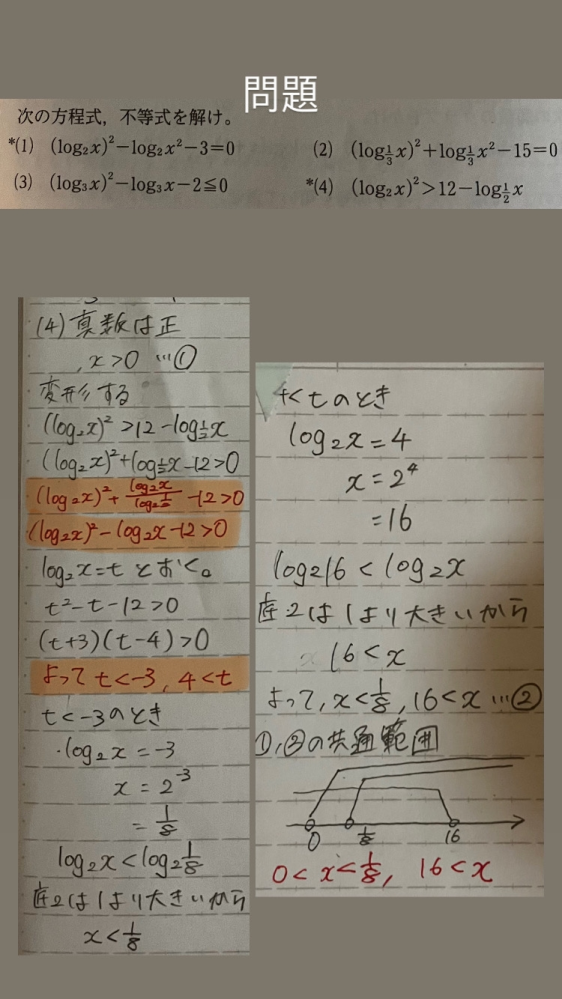 問題
次の方程式，不等式を解け。
*(1) (log₂x)²−log₂x²−3=0
(2) (log_{1/3}x)²+log_{1/3}x²−15=0
(3) (log₃x)²−log₃x−2≦0
*(4) (log₂x)²>12−log_{1/2}x
(4) 真数は正
x>0 …①
変形する
(log₂x)²>12−log_{1/2}x
(log₂x)²+log_{1/2}x−12>0
(log₂x)²+\frac{log₂x}{log₂\frac{1}{2}}−12>0
(log₂x)²−log₂x−12>0
log₂x=tとおく。
t²−t−12>0
(t+3)(t−4)>0
よって t<−3, 4<t
t<−3のとき
log₂x=−3
x=2⁻³
=1/8
log₂x<log₂1/8
底2は1より大きいから
x<1/8
4<tのとき
log₂x=4
x=2⁴
=16
log₂16<log₂x
底2は1より大きいから
16<x
よって, x<1/8, 16<x …②
①,②の共通範囲
0 1/8 16
0<x<1/8, 16<x